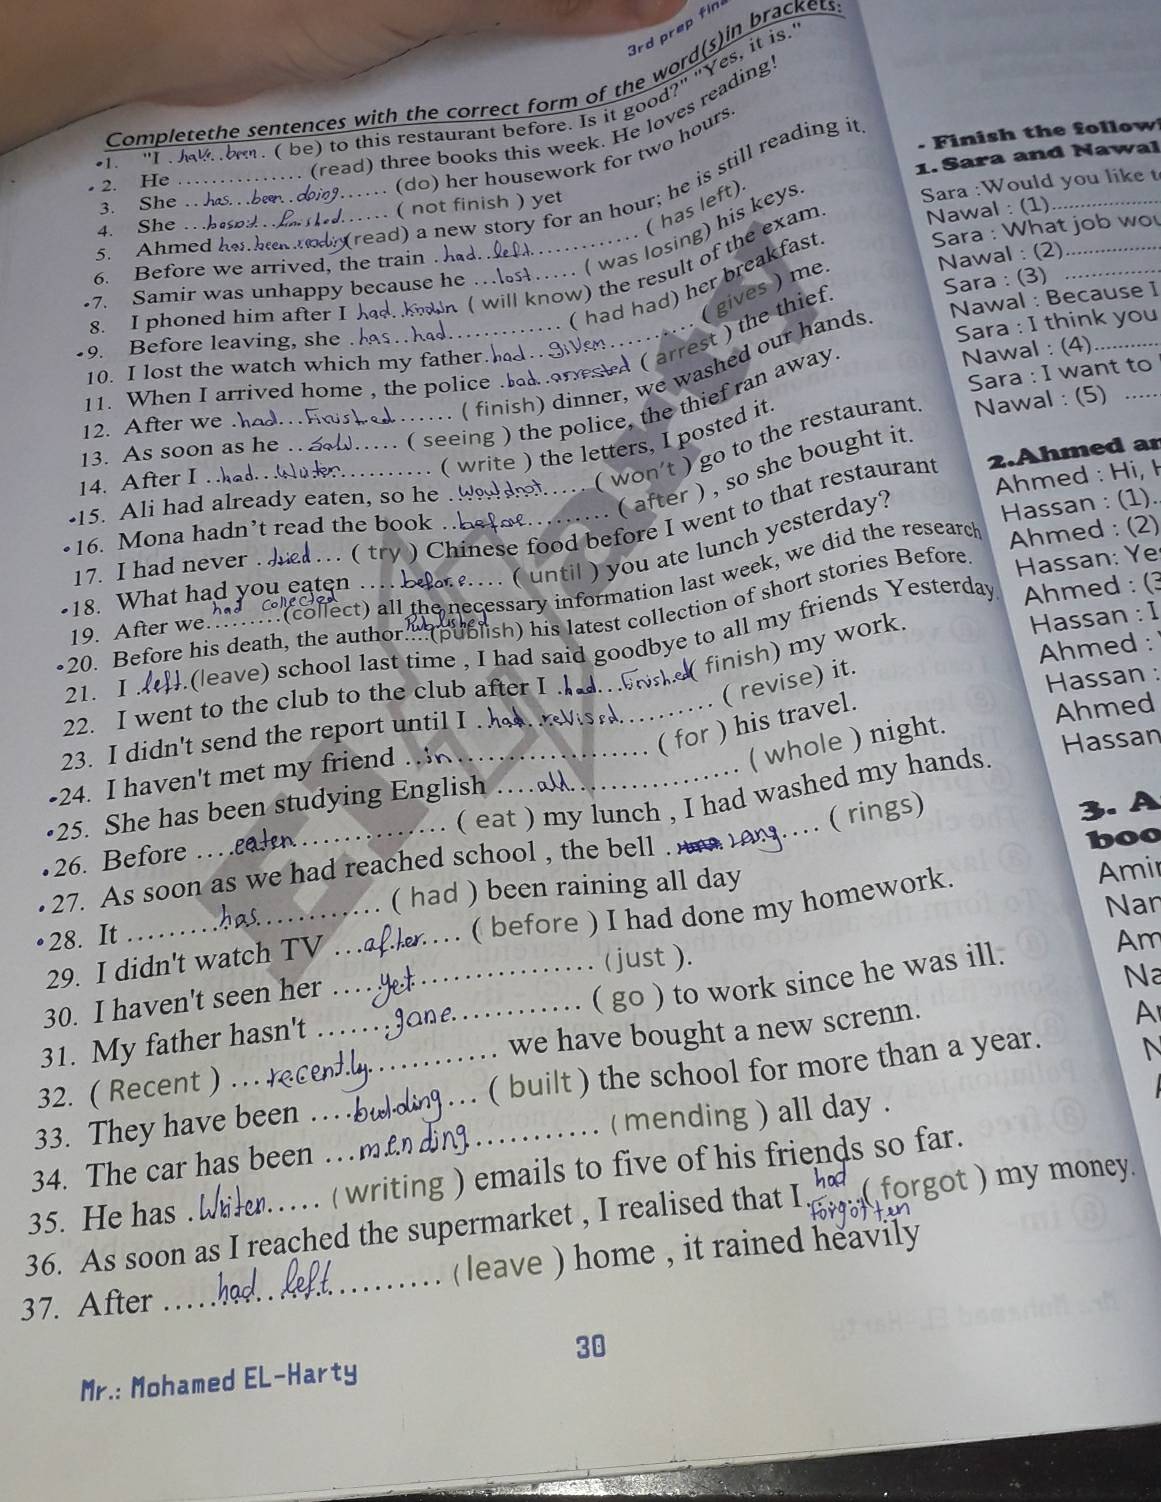 3rd prep fin
Completethe sentences with the correct form of the word(s)in brackets:
1. "I .have..been. ( be) to this restaurant before. Is it good?" "Yes, it is."
2. He ............... (read) three books this week. He loves reading!
3. She ..has...been..doing...... (do) her housework for two hours.
4. She ............... ( not finish ) yet
5. Ahmed has.been.reading(read) a new story for an hour; he is still reading it.
6. Before we arrived, the train .had..left............. ( has left).
7. Samir was unhappy because he ...lost..... ( was losing) his keys.
8. I phoned him after I had..known ( will know) the result of the exam.
9. Before leaving, she .has..had............ ( had had) her breakfast.
10. I lost the watch which my father.had..given.......... ( gives ) me.
11. When I arrived home , the police .had..arrested ( arrest ) the thief.
12. After we .had...Finished...... ( finish) dinner, we washed our hands.
13. As soon as he ..saw..... ( seeing ) the police, the thief ran away.
14. After I ..had...Writen.......... ( write ) the letters, I posted it.
15. Ali had already eaten, so he .wouldnot...... ( won't ) go to the restaurant.
16. Mona hadn't read the book ..before.......... ( after ) , so she bought it.
17. I had never .dried.... ( try ) Chinese food before I went to that restaurant
18. What had you eaten ....before.... ( until ) you ate lunch yesterday?
19. After we.........(collect) all the necessary information last week, we did the research
had collected
20. Before his death, the author....(publish) his latest collection of short stories Before.
Published
21. I .left.(leave) school last time , I had said goodbye to all my friends Yesterday
22. I went to the club to the club after I .had...finished( finish) my work.
23. I didn't send the report until I .had..revised.......... ( revise) it.
24. I haven't met my friend ..in.................. ( for ) his travel.
25. She has been studying English ....all............... ( whole ) night.
26. Before ....eaten............. ( eat ) my lunch , I had washed my hands.
27. As soon as we had reached school , the bell . rang.... ( rings)
28. It .........has............. ( had ) been raining all day
29. I didn't watch TV ...after.... ( before ) I had done my homework.
30. I haven't seen her ....yet................ (just ).
31. My father hasn't .......gone............. ( go ) to work since he was ill.
32. ( Recent ) ...recently............. we have bought a new screnn.
33. They have been ....building... ( built ) the school for more than a year.
34. The car has been ...mending............ (mending ) all day .
35. He has .Writen..... (writing ) emails to five of his friends so far.
36. As soon as I reached the supermarket , I realised that I.......( forgot ) my money.
had
forgotten
37. After .....had..left............ (leave ) home , it rained heavily
30
Mr.: Mohamed EL-Harty
- Finish the follow
1.Sara and Nawal
Sara :Would you like t
Nawal : (1)
Sara : What job wou
Nawal : (2)
Sara : (3)
Nawal : Because I
Sara : I think you
Nawal : (4)
Sara : I want to
Nawal : (5)
2.Ahmed an
Ahmed : Hi, H
Hassan : (1).
Ahmed : (2)
Hassan: Ye
Ahmed : (3
Hassan : I
Ahmed :
Hassan :
Ahmed
Hassan
3. A
boo
Amir
Nar
Am
Na